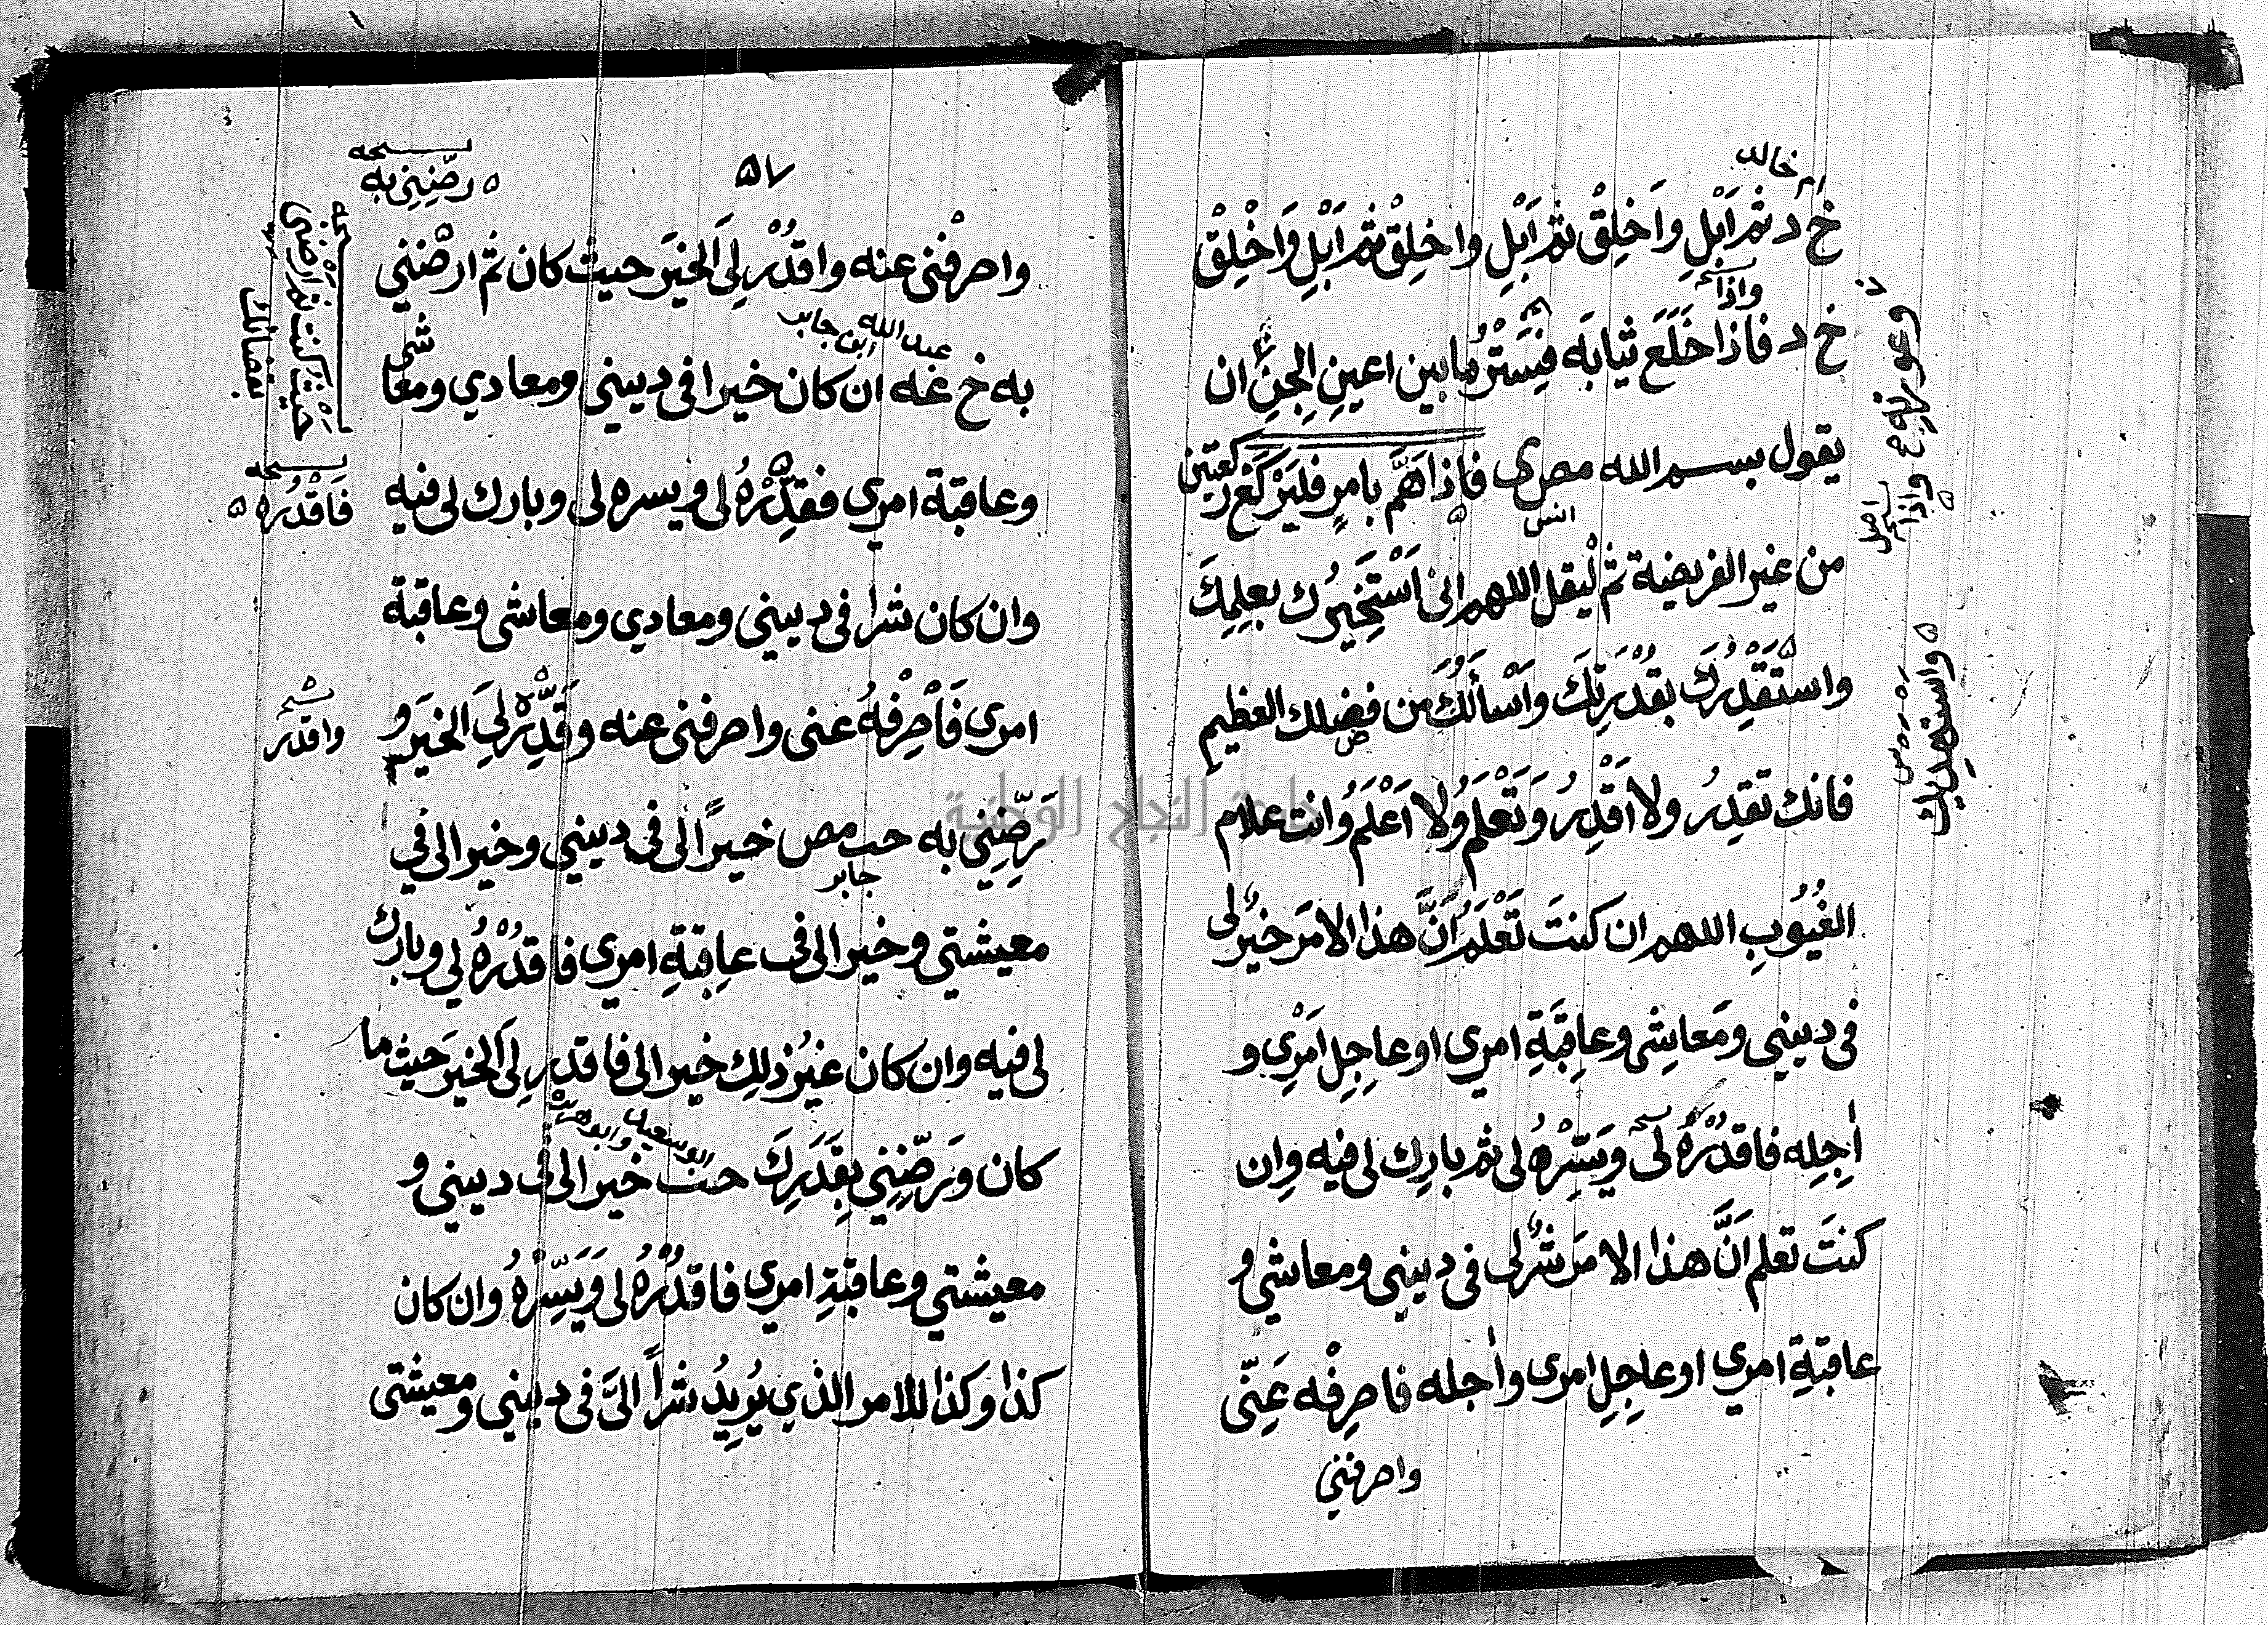 ام خالد
خ د ثم اَبْلِ وَاَخْلِقْ ثم اَبْلِ واخلِقْ ثم اَبْلِ وَاَخْلِقْ
واذا
خ د فاذا خَلَعَ ثيابَه فَسَتْرُ ما بين اعينِ الجِنِّ ان
يقول بسم الله مص ى فاذا هَمَّ بامرٍ فليَرْكَعْ ركعتين
انس
من غير الفريضة ثم لْيقل اللهم انى اَسْتَخيرُك بعِلمِكَ
واستَقْدِرُكَ بقُدْرَتِكَ واَسْأَلُكَ من فضلك العظيم
فانك تقدِرُ ولا اَقْدِرُ وَتَعْلَمُ وَلا اَعْلَمُ وانت علام
الغُيُوبِ اللهم ان كنتَ تَعْلَمُ اَنَّ هذا الامرَ خيرٌ لى
فى دينى ومَعاشِى وعاقِبَةِ امرى او عاجِلِ اَمْرِى و
اٰجِلِه فاقدُرْهُ لى ويَسِّرْهُ لى ثم بارِك لى فيه واِن
كنتَ تعلم اَنَّ هذا الامرَ شرٌ لى فى دينى ومعاشي و
عاقبةِ امري او عاجِلِ امرى واٰجله فاصرِفْه عَنِّى
واصرفنى
وعورته ع واذا
نسخه اصيل
واستهديك
٥٧
واصرفْنى عنه واقدُرْ لِىَ الخيرَ حيث كان ثم ارضنى
عبد الله ابن جابر
به خ عه ان كان خيرا فى دينى ومعادي ومعاشى
وعاقبة امري فقدِّرْهُ لى ويسره لى وبارك لى فيه
وان كان شرا فى دينى ومعادي ومعاشى وعاقبة
امرى فَاْصرِفْهُ عنى واصرفنى عنه وقَدِّرْ لِىَ الخيرَ و
رَضِّنِى به حب مص خيراً لى فى دينى وخيرا لى فى
جابر
معيشتى وخيرا لى فى عاقِبَةِ امرى فاقدُرْهُ لى وبارك
لى فيه وان كان غيرُ ذلِك خيرا لى فاقدر لِىَ الخيرَ حيث ما
ابو سعيد وابو هريرة
كان وَرَضِّنى بِقَدَرِكَ حب خيرا لى فى دينى و
معيشتي وعاقبةِ امرى فاقدُرْهُ لى وَيَسِّرْهُ وان كان
كذا وكذا للامر الذي يُرِيدُ شراً لى فى دينى ومعيشتى
نسخه
رضّنِى به
حَيْثُ كنت ثم ارضنى
بقضائك
نسخه
فَاقْدُرْه
واقدر
جامعة النجاح الوطنية